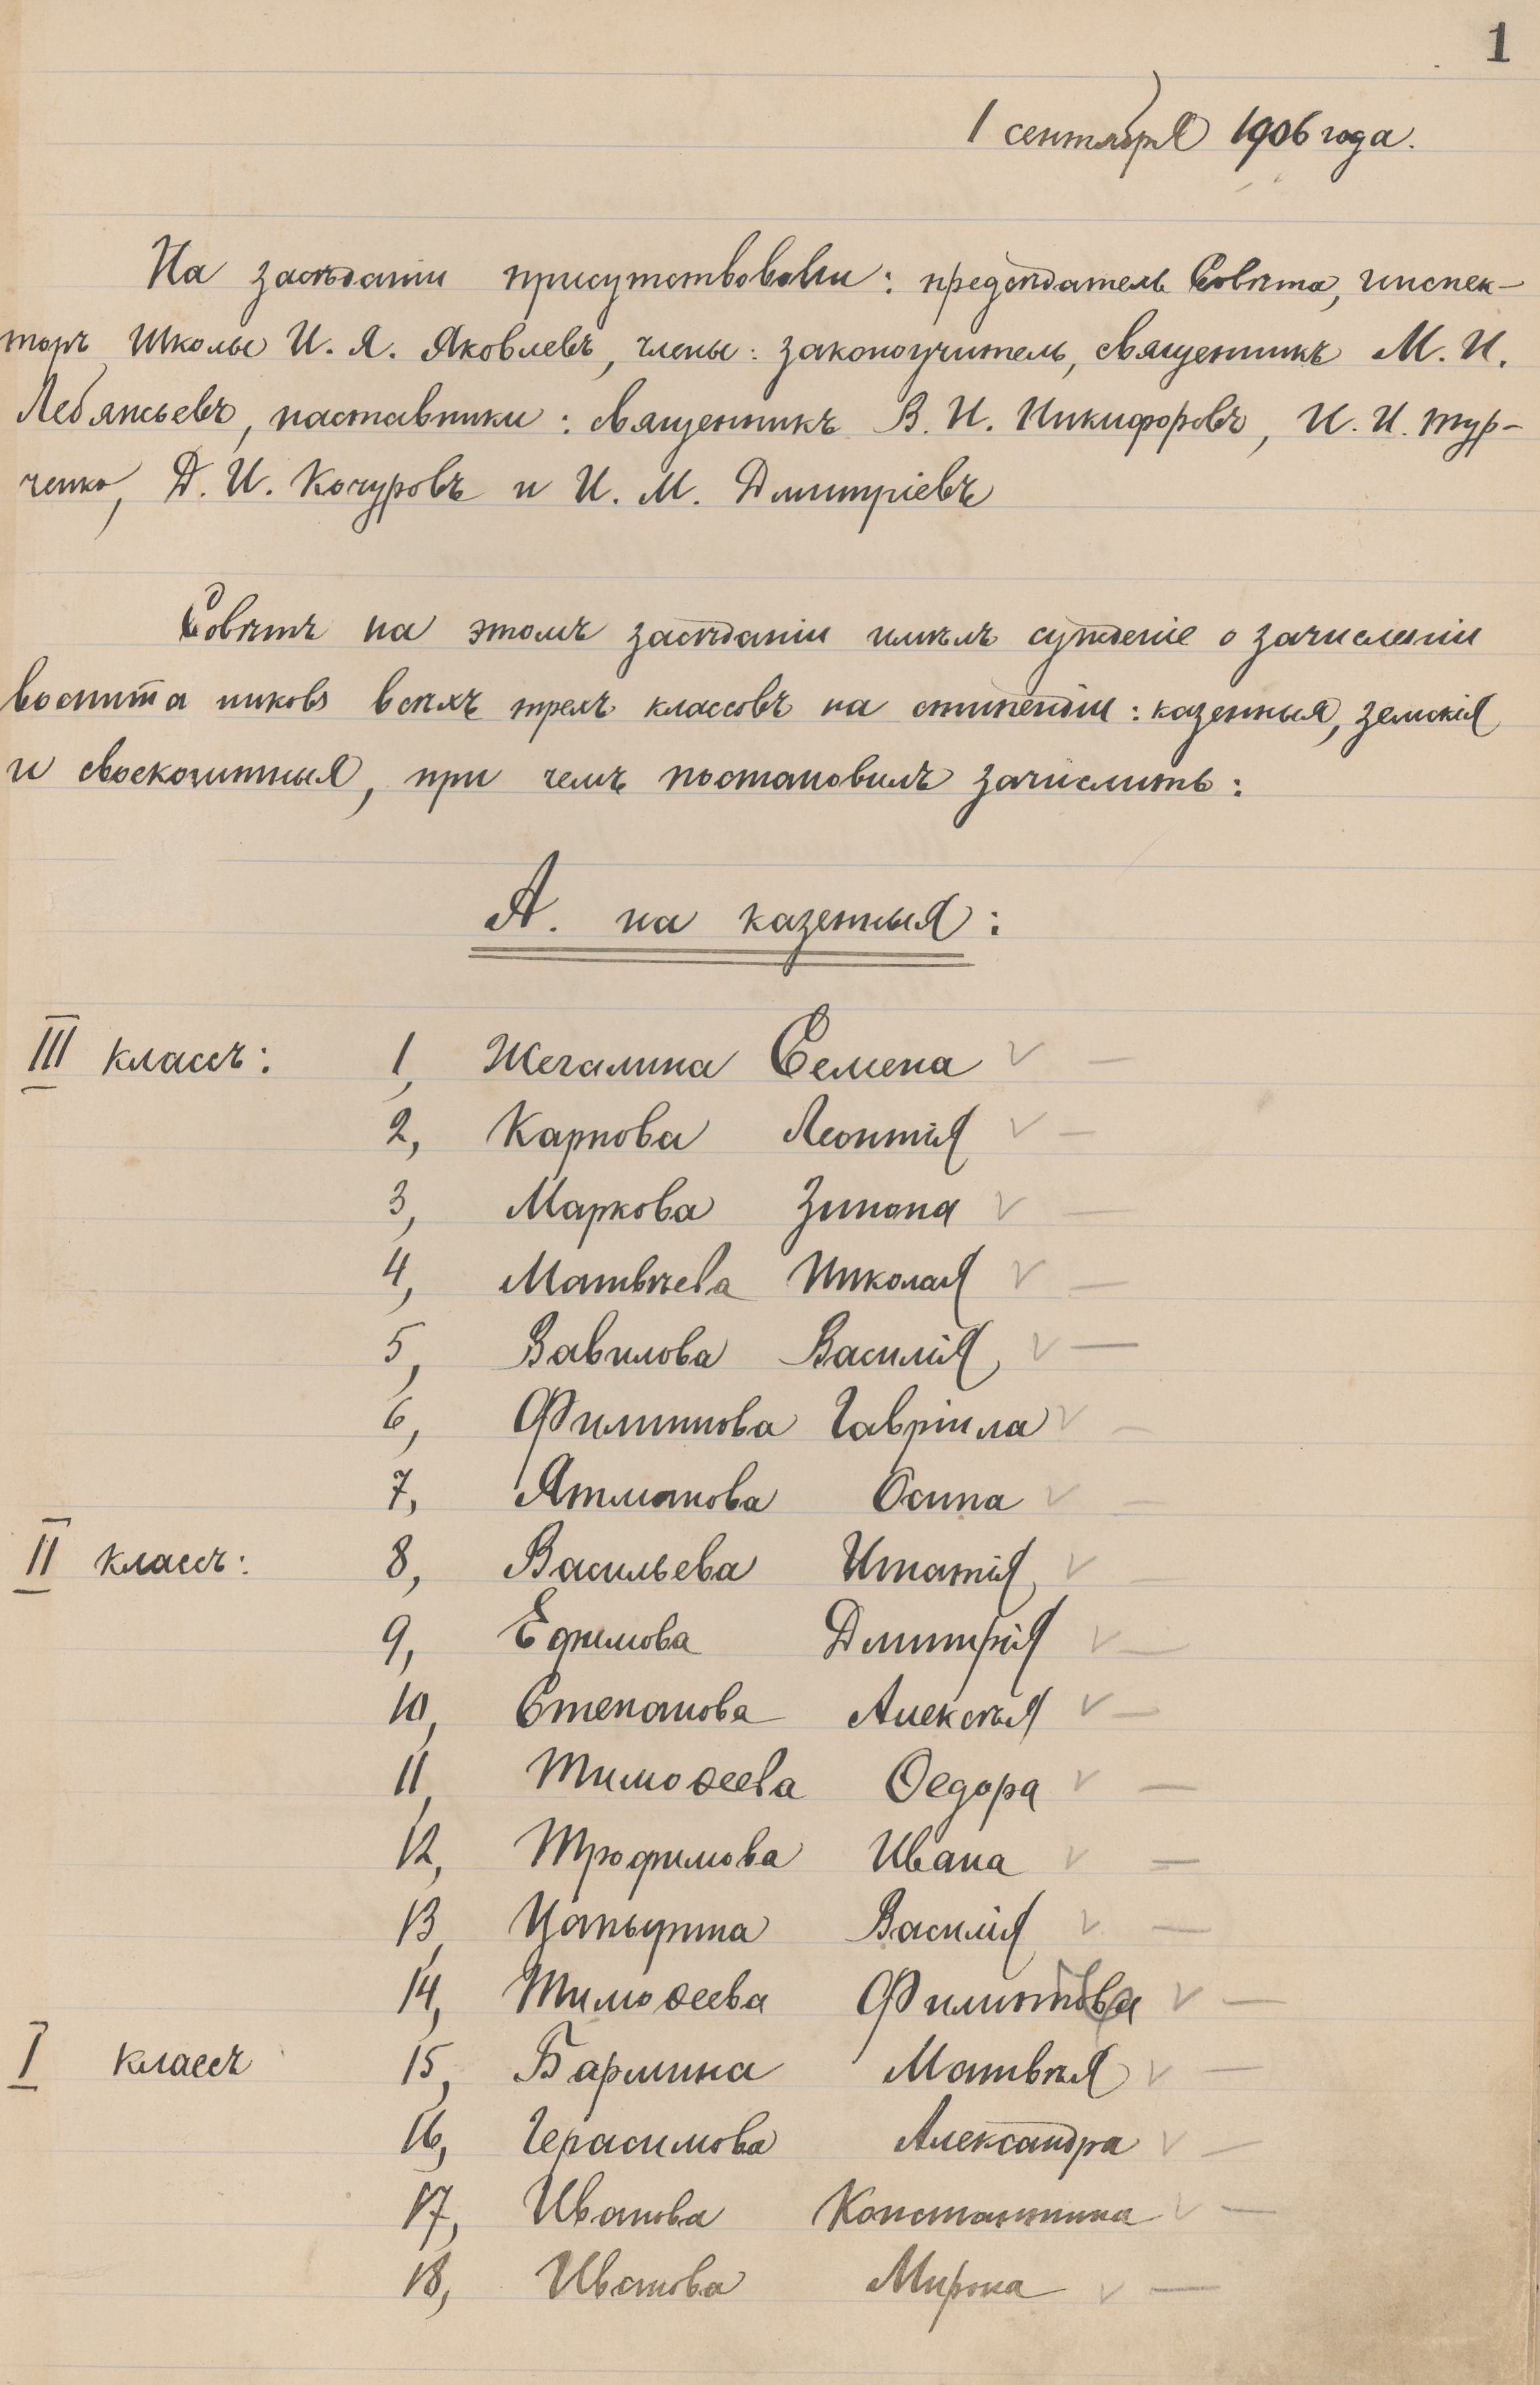 1
1 сентября 1906 года.
На засѣданіи присутствовали: предсѣдатель Совѣта, инспек-
торъ Школы И. Я. Яковлевъ, члены: законоучитель, священникъ М. И.
Лебяжьевъ, наставники: священникъ В. Н. Никифоровъ, И. И. Тур-
ченко, Д. И. Кочуровъ и И. М. Дмитріевъ
Совѣтъ на этомъ засѣданіи имѣлъ сужденіе о зачисленіи
воспита никовъ всѣхъ трехъ классовъ на стипендіи: казенныя, земскія
и своекоштныя, при чемъ постановилъ зачислить:
А. на казенныя:
III классъ: 1, Жегалина Семена
2, Карпова Леонтія
3, Маркова Зинона
4, Матвѣева Николая
5, Вавилова Василія
6, Филиппова Гавріила
7, Ятманова Осипа
II классъ: 8, Васильева Игнатія
9, Ефимова Дмитрія
10, Степанова Алексѣя
11, Тимоѳеева Ѳедора
12, Трофимова Ивана
13, Цапырина Василія
14, Тимоѳеева
I классъ 15, Бармина Матвѣя
16, Герасимова Александра
17, Иванова Константина
18, Иванова Мирона